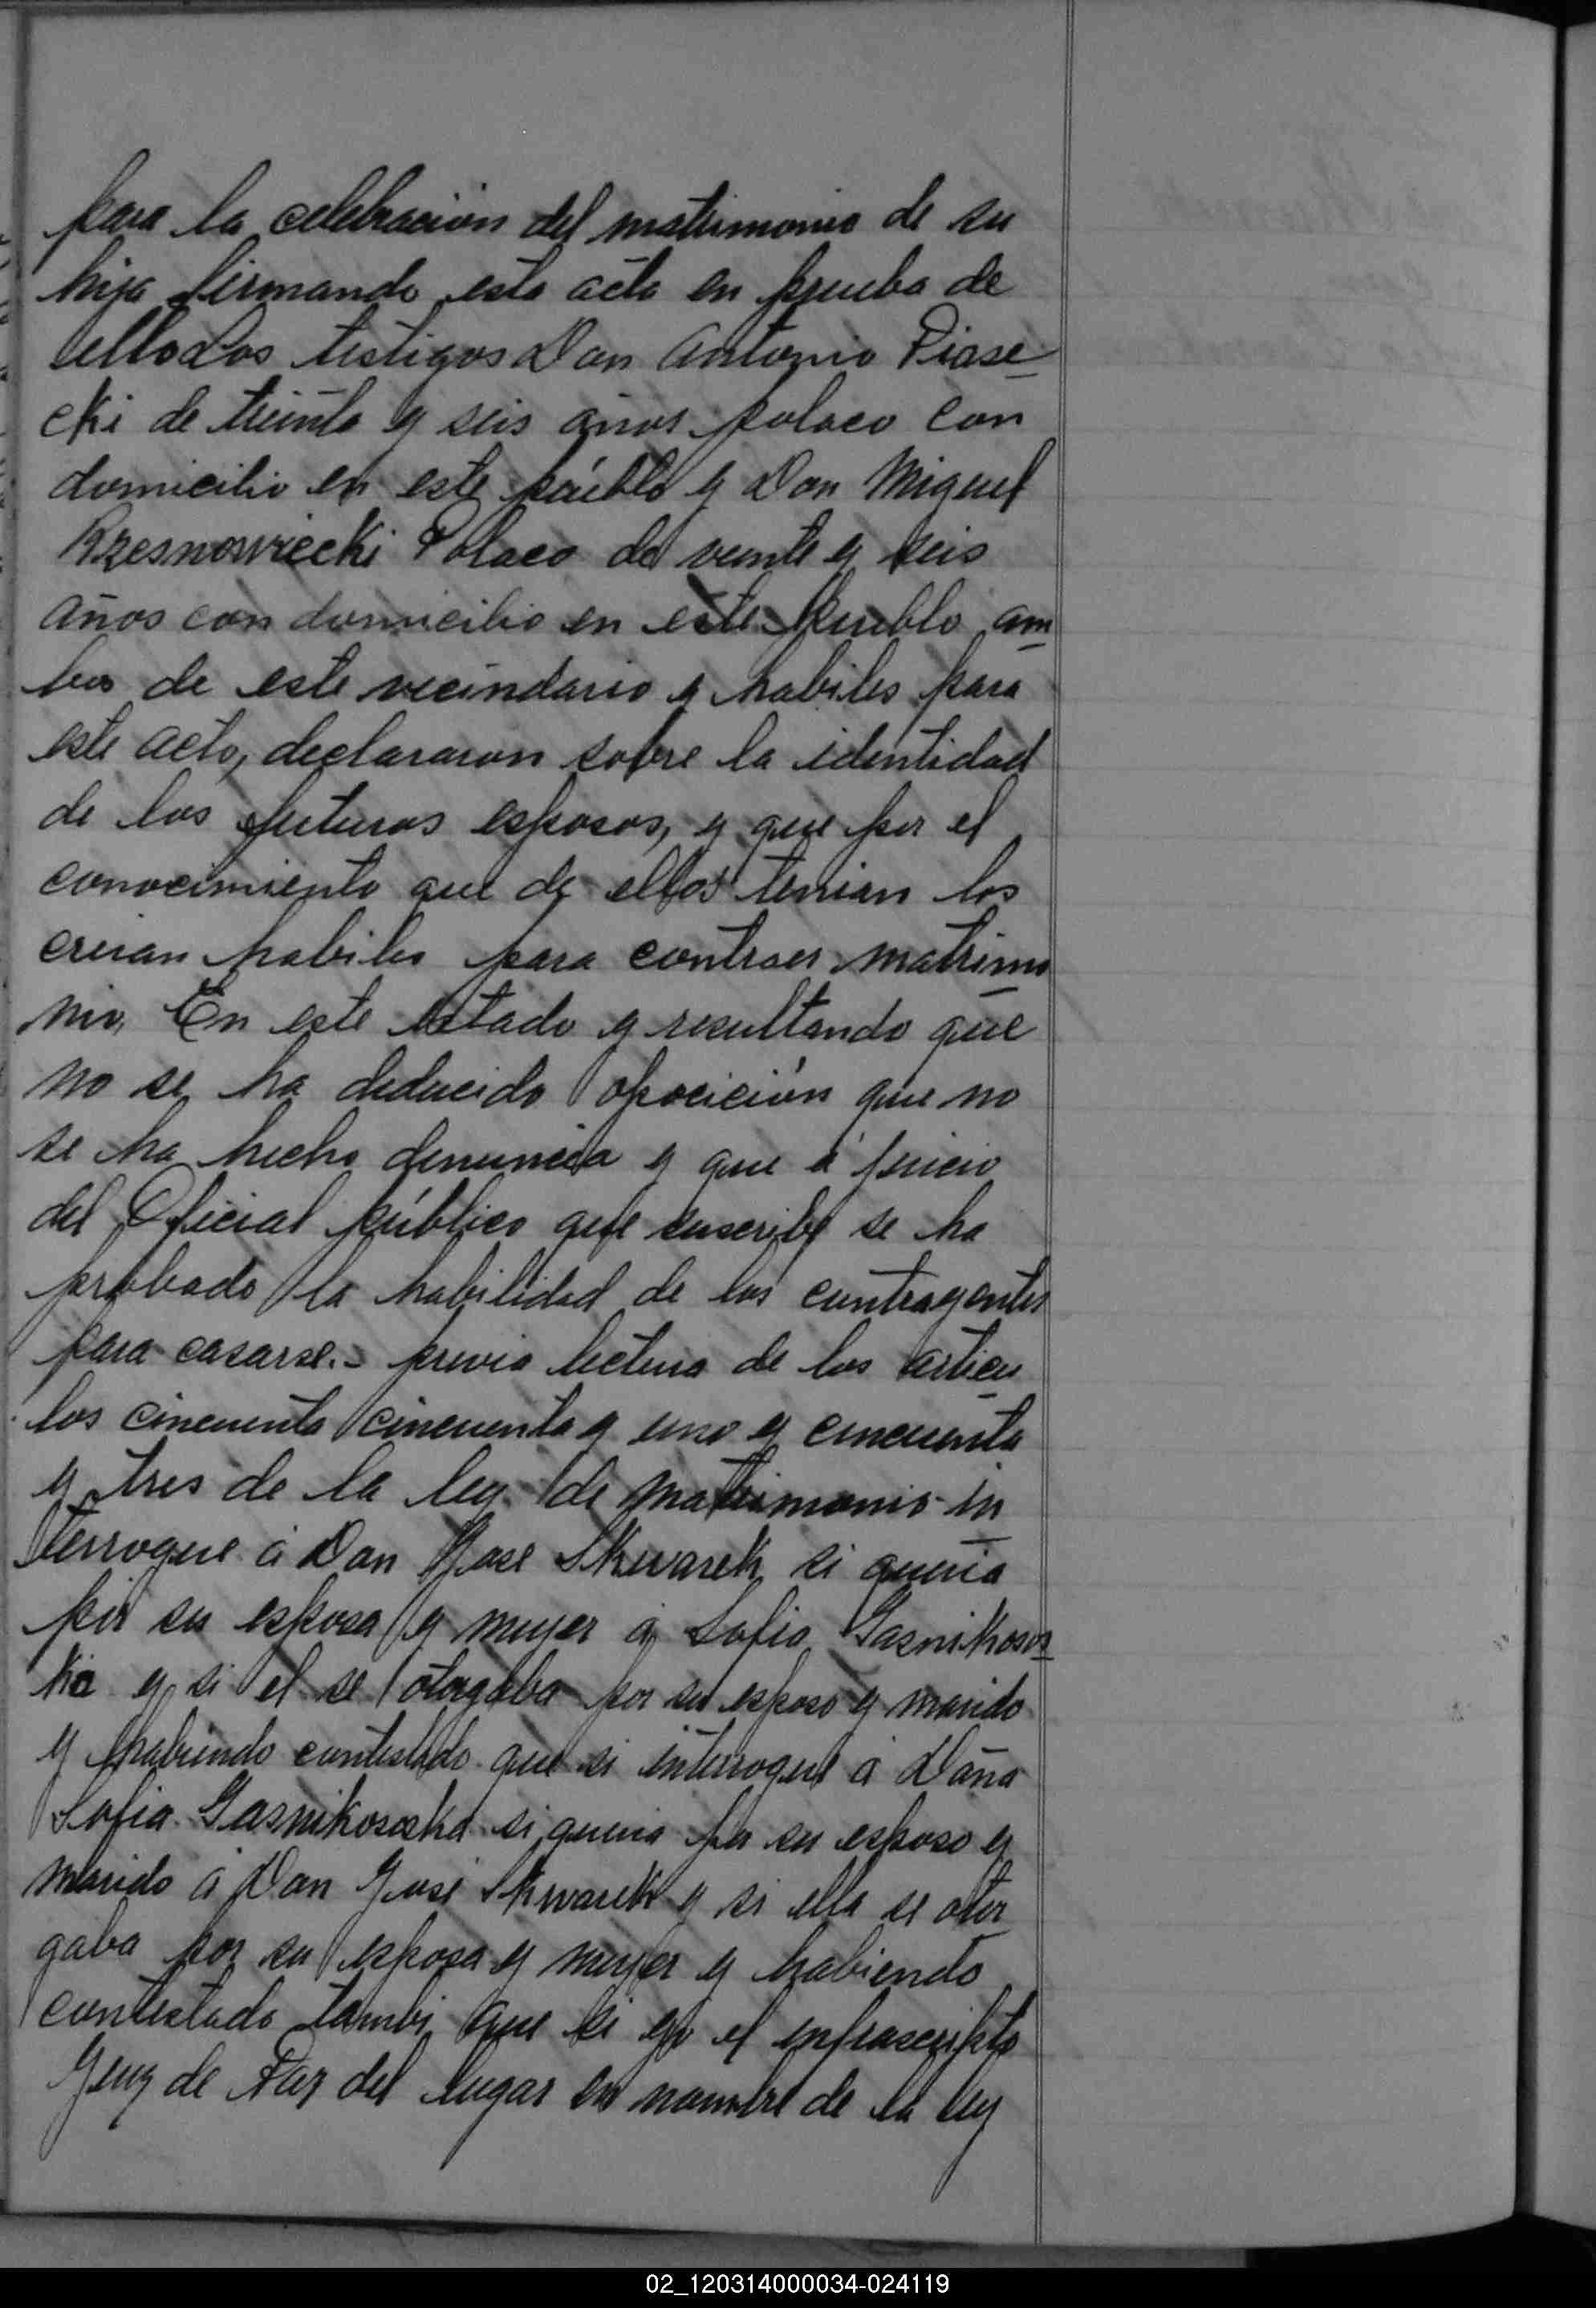 para la celebracion del matrimonio de su
hija firmando esta acta en prueba de
ello Los testigos Don Antonio Piase
cki de treinta y seis años polaco con
domicilio en este pueblo y Don Miguel
Rzesnowiecki Polaco de veinte y seis
años con domicilio en este pueblo am
bos de este vecindario y habiles para
este acto, declararon sobre la identidad
de los futuros esposos, y que por el
conocimiento que de ellos tenian los
creian habiles para contraer matrimo
nio, En este estado y resultando que
no se ha deducido oposición que no
se ha hecho denuncia y que á juicio
del Oficial público que suscribe se ha
probado la habilidad de los contrayentes
para casarse.- previa lectura de los articu
los cincuenta cincuenta y uno y cincuenta
y tres de la ley de matrimonio in
terrogue á Don Jose Skwarek si queria
por su esposa y mujer á Sofia Gasnikosos
ka y si el se otorgaba por su esposo y marido
y habiendo contestado que si interrogué á Doña
Sofia Gasnikososka si queria por su esposo y
marido á Don José Skwarek y si ella se otor
gaba por su esposa y mujer y habiendo
contestado tambi que si yo el infrascripto
Juez de Paz del lugar en nombre de la ley
02_120314000034-024119